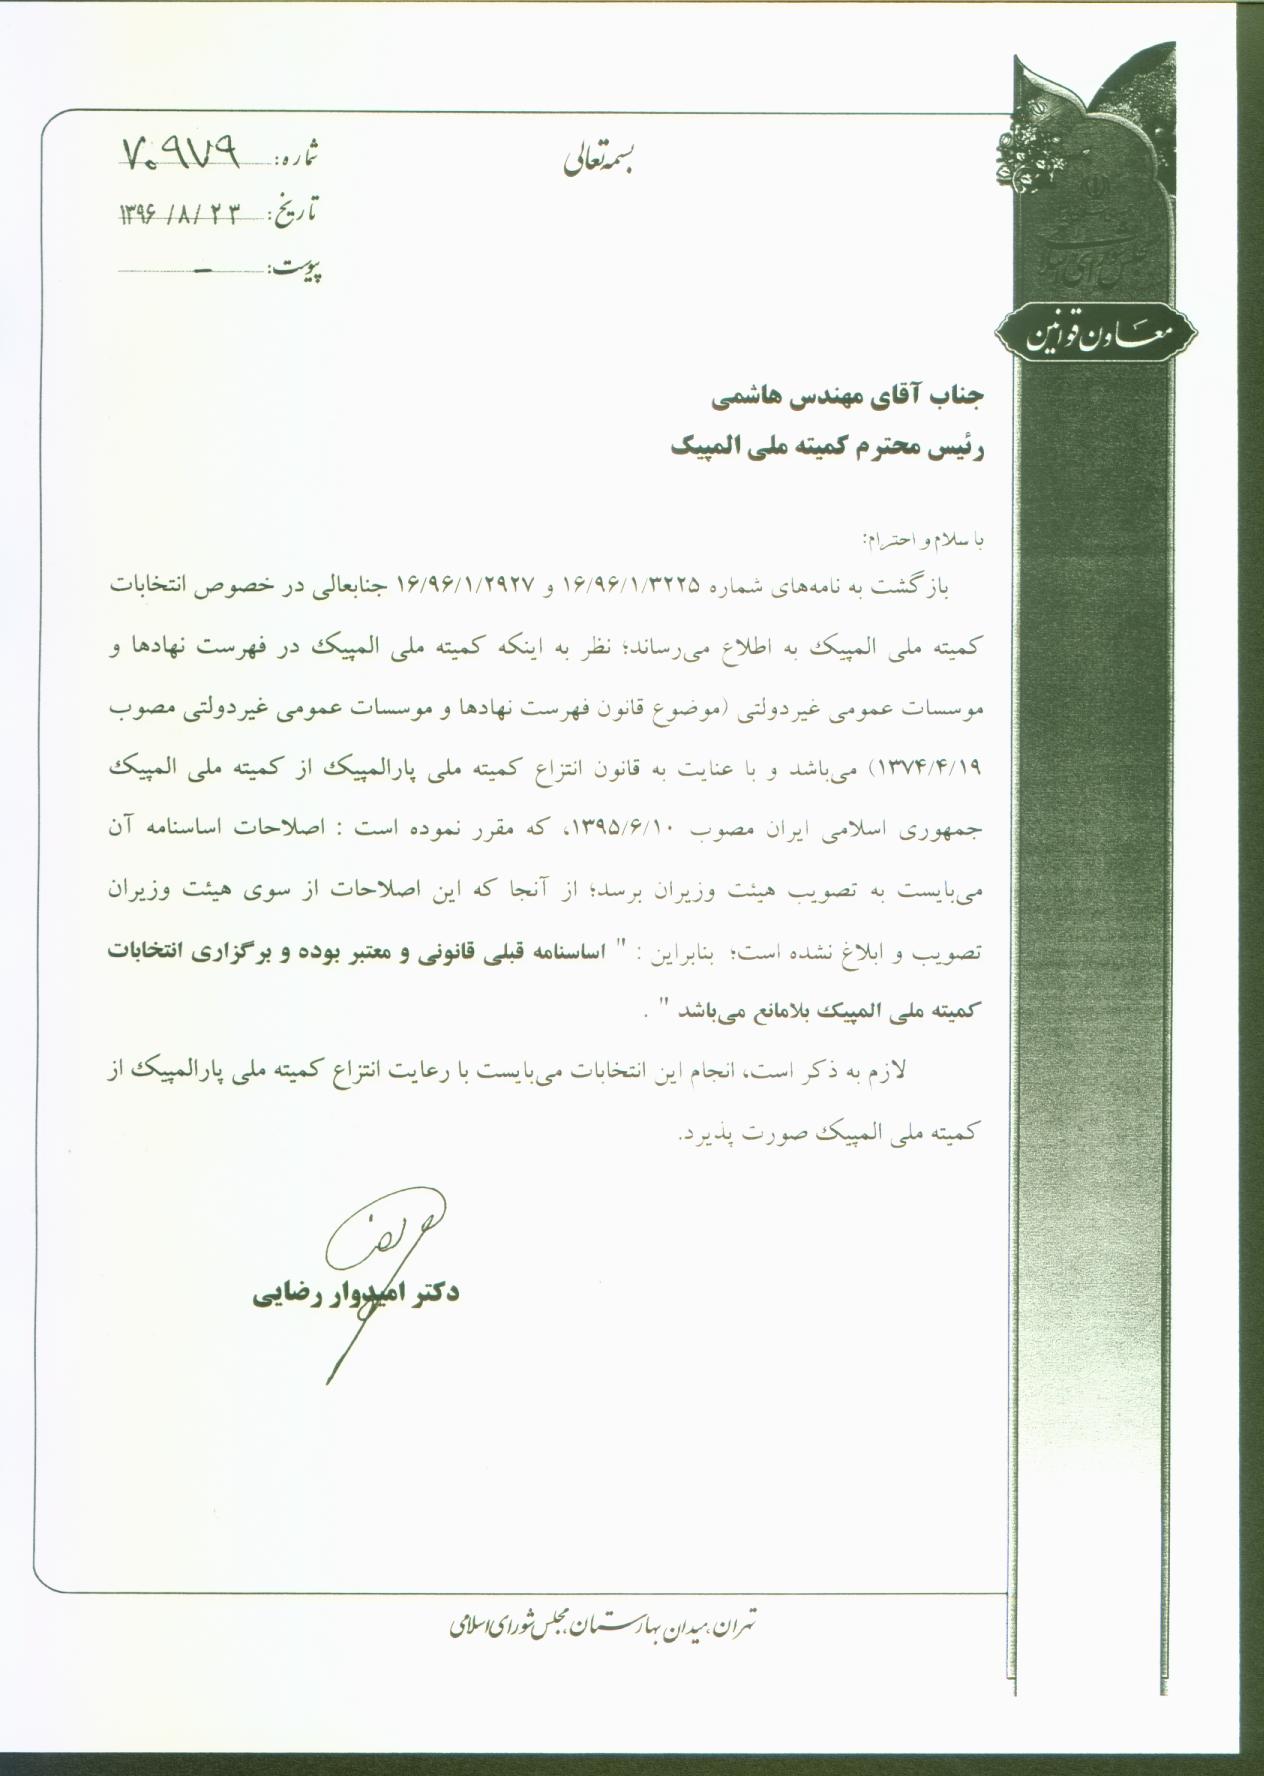 بسمه تعالی
شماره: ۷۰۹۷۹
تاریخ: ۱۳۹۶/۸/۲۳
پیوست: –
مجلس شورای اسلامی
معاون قوانین
جناب آقای مهندس هاشمی
رئیس محترم کمیته ملی المپیک
با سلام و احترام:
بازگشت به نامه‌های شماره ۱۶/۹۶/۱/۳۲۲۵ و ۱۶/۹۶/۱/۲۹۲۷ جنابعالی در خصوص انتخابات
کمیته ملی المپیک به اطلاع می‌رساند؛ نظر به اینکه کمیته ملی المپیک در فهرست نهادها و
موسسات عمومی غیردولتی (موضوع قانون فهرست نهادها و موسسات عمومی غیردولتی مصوب
۱۳۷۴/۴/۱۹) می‌باشد و با عنایت به قانون انتزاع کمیته ملی پارالمپیک از کمیته ملی المپیک
جمهوری اسلامی ایران مصوب ۱۳۹۵/۶/۱۰، که مقرر نموده است : اصلاحات اساسنامه آن
می‌بایست به تصویب هیئت وزیران برسد؛ از آنجا که این اصلاحات از سوی هیئت وزیران
تصویب و ابلاغ نشده است؛ بنابراین : " اساسنامه قبلی قانونی و معتبر بوده و برگزاری انتخابات
کمیته ملی المپیک بلامانع می‌باشد " .
لازم به ذکر است، انجام این انتخابات می‌بایست با رعایت انتزاع کمیته ملی پارالمپیک از
کمیته ملی المپیک صورت پذیرد.
دکتر امیدوار رضایی
تهران، میدان بهارستان، مجلس شورای اسلامی